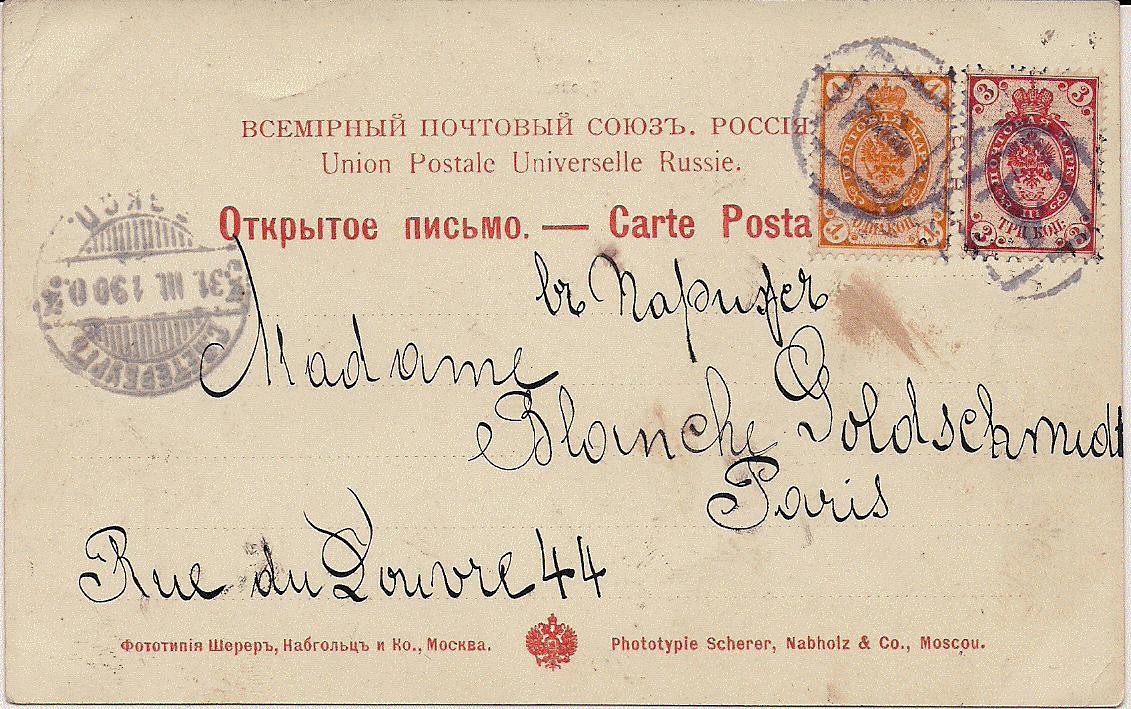 ВСЕМІРНЫЙ ПОЧТОВЫЙ СОЮЗЪ. РОССІЯ.
Union Postale Universelle Russie.
Открытое письмо. — Carte Posta
1 1
ПОЧТОВАЯ МАРКА
1 ОДНА КОП. 1
3 3
ПОЧТОВАЯ МАРКА
3 ТРИ КОП. 3
31 III 1900
С.ПЕТЕРБУРГЪ
въ Парижъ
Madame
Blanche Goldschmidt
Paris
Rue du Louvre 44
Фототипія Шереръ, Набгольцъ и Ко., Москва.
Phototypie Scherer, Nabholz & Co., Moscou.